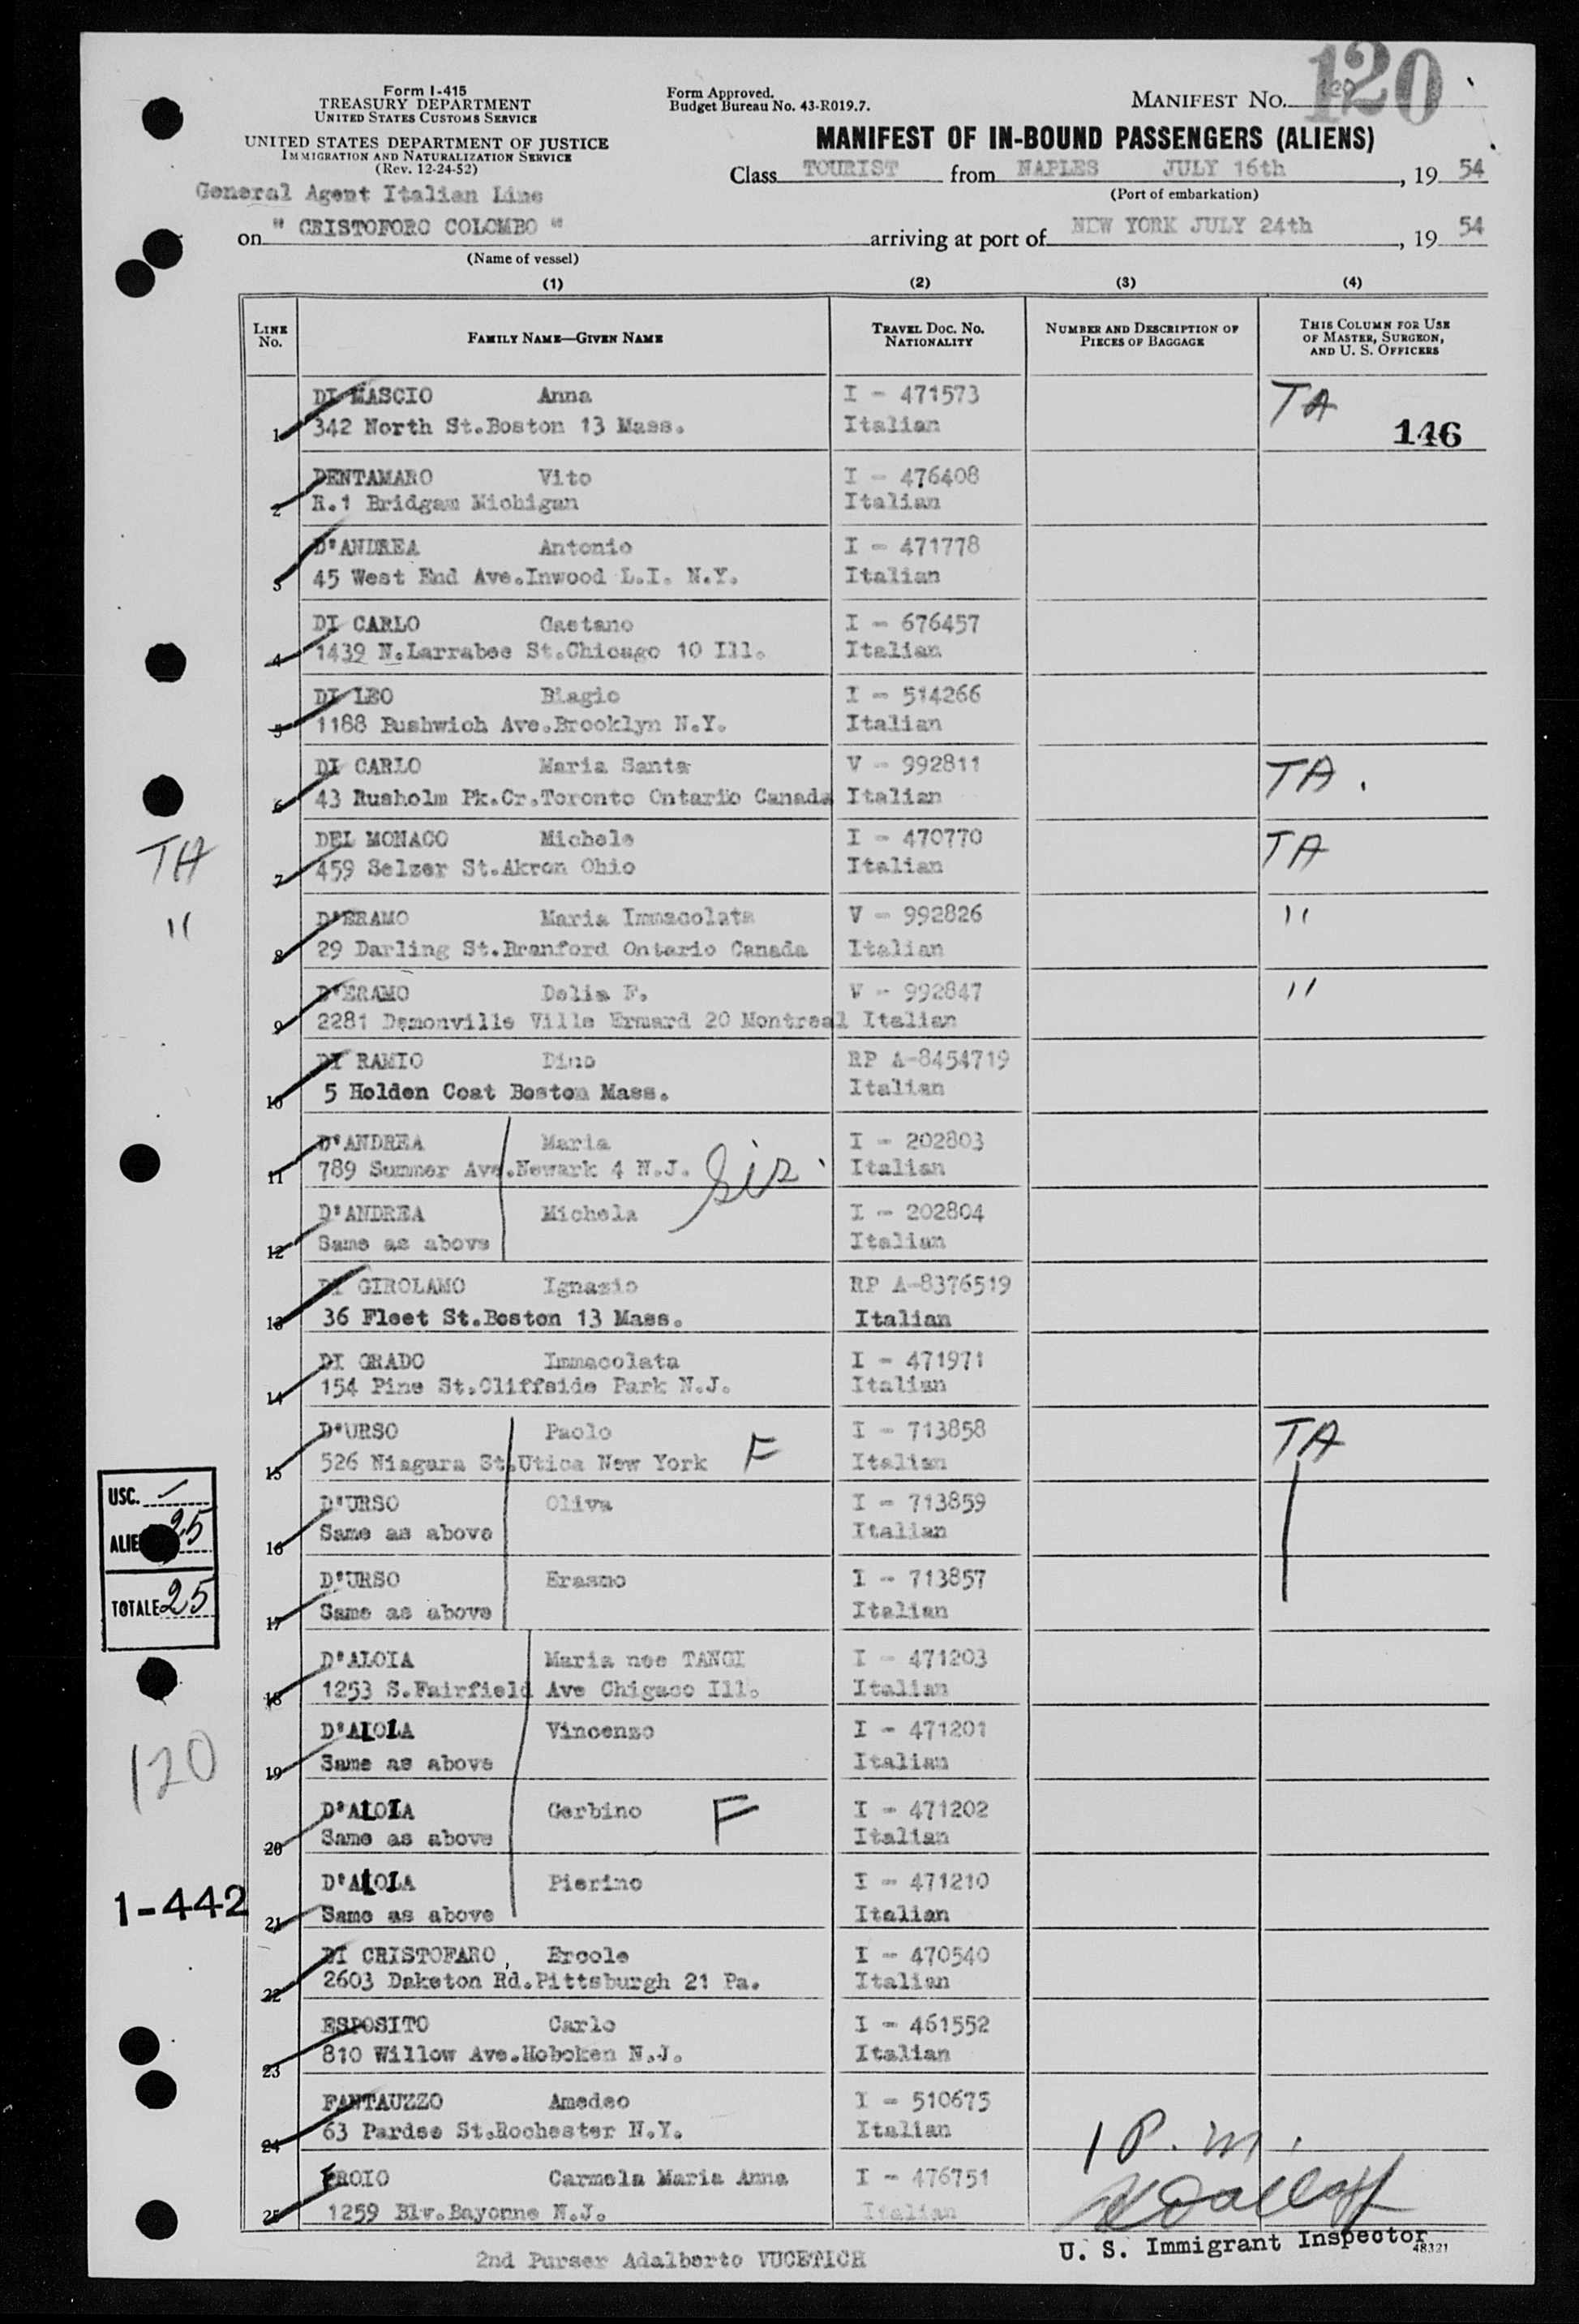 Form I-415
TREASURY DEPARTMENT
UNITED STATES CUSTOMS SERVICE
UNITED STATES DEPARTMENT OF JUSTICE
IMMIGRATION AND NATURALIZATION SERVICE
(Rev. 12-24-52)
General Agent Italian Line
Form Approved.
Budget Bureau No. 43-R019.7.
MANIFEST NO. 120
MANIFEST OF IN-BOUND PASSENGERS (ALIENS)
Class TOURIST from NAPLES JULY 16th, 19 54
(Port of embarkation)
on " CRISTOFORO COLOMBO " arriving at port of NEW YORK JULY 24th, 19 54
(Name of vessel)
(1) (2) (3) (4)
LINE No. FAMILY NAME—GIVEN NAME TRAVEL DOC. NO. NATIONALITY NUMBER AND DESCRIPTION OF PIECES OF BAGGAGE THIS COLUMN FOR USE OF MASTER, SURGEON, AND U. S. OFFICERS
DI MASCIO Anna I - 471573 TA
1 342 North St.Boston 13 Mass. Italian 146
DENTAMARO Vito I - 476408
2 R.1 Bridgam Michigan Italian
D'ANDREA Antonio I - 471778
3 45 West End Ave.Inwood L.I. N.Y. Italian
DI CARLO Gaetano I - 676457
4 1439 N.Larrabee St.Chicago 10 Ill. Italian
DI LEO Biagio I - 514266
5 1188 Bushwich Ave.Brooklyn N.Y. Italian
DI CARLO Maria Santa V - 992811 TA .
6 43 Rusholm Pk.Cr.Toronto Ontario Canada Italian
DEL MONACO Michele I - 470770 TA
TA 7 459 Selzer St.Akron Ohio Italian
D'ERAMO Maria Immacolata V - 992826 "
" 8 29 Darling St.Branford Ontario Canada Italian
D'ERAMO Delia F. V - 992847 "
9 2281 Demonville Ville Ermard 20 Montreal Italian
DI RAMIO Dino RP A-8454719
10 5 Holden Coat Boston Mass. Italian
D'ANDREA Maria I - 202803
11 789 Summer Ave.Newark 4 N.J. Sis. Italian
D'ANDREA Michela I - 202804
12 Same as above Italian
DI GIROLAMO Ignazio RP A-8376519
13 36 Fleet St.Boston 13 Mass. Italian
DI GRADO Immacolata I - 471971
14 154 Pine St.Cliffside Park N.J. Italian
D'URSO Paolo I - 713858 TA
15 526 Niagara St.Utica New York F Italian
D'URSO Oliva I - 713859
16 Same as above Italian
D'URSO Erasmo I - 713857
17 Same as above Italian
USC. —
ALIE 25
TOTALE 25
D'ALOIA Maria nee TANGI I - 471203
18 1253 S.Fairfield Ave Chigaco Ill. Italian
D'ALOIA Vincenzo I - 471201
19 Same as above Italian
120
D'ALOIA Gerbino F I - 471202
20 Same as above Italian
D'ALOIA Pierino I - 471210
1-442
21 Same as above Italian
DI CRISTOFARO, Ercole I - 470540
22 2603 Daketon Rd.Pittsburgh 21 Pa. Italian
ESPOSITO Carlo I - 461552
23 810 Willow Ave.Hoboken N.J. Italian
FANTAUZZO Amedeo I - 510675
24 63 Pardee St.Rochester N.Y. Italian
1 P. M.
FROIO Carmela Maria Anna I - 476751
25 1259 Blv.Bayonne N.J. Italian
U. S. Immigrant Inspector
48321
2nd Purser Adalberto VUCETICH